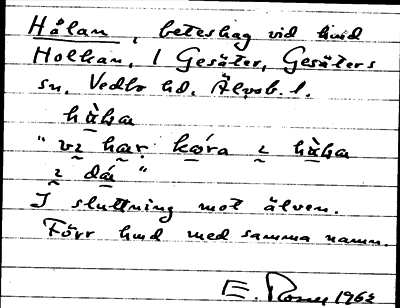 Hålan, beteshag vid hmd
Holkan, 1 Gesäter, Gesäters
sn, Vedbo hd, Älvsb. l.
hàḷa
"vɩ har kǿra ɩ hàḷa
ɩ dá"
I sluttning mot älven.
Förr hmd med samma namn.
E. 1962